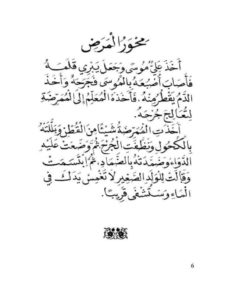 مَحْوَرُ الْمَرَضِ
أَخَذَ عَلِيٌّ مُوسَى وَجَعَلَ يَبْرِي قَلَمَهُ
فَأَصَابَ أُصْبُعَهُ بِالْمُوسَى فَجَرَحَهُ وَأَخَذَ
الدَّمُ يَقْطُرُ مِنْهُ. فَأَخَذَهُ الْمُعَلِّمُ إِلَى الْمُمَرِّضَةِ
لِتُعَالِجَ جُرْحَهُ.
أَخَذَتِ الْمُمَرِّضَةُ شَيْئًا مِنَ الْقُطْنِ وَبَلَّلَتْهُ
بِالْكُحُولِ وَنَظَّفَتِ الْجُرْحَ ثُمَّ وَضَعَتْ عَلَيْهِ
الدَّوَاءَ وَضَمَّدَتْهُ بِالضِّمَادِ. ثُمَّ ابْتَسَمَتْ
وَقَالَتْ لِلْوَلَدِ الصَّغِيرِ لَا تَغْمِسْ يَدَكَ فِي
الْمَاءِ وَسَتُشْفَى قَرِيبًا.
6